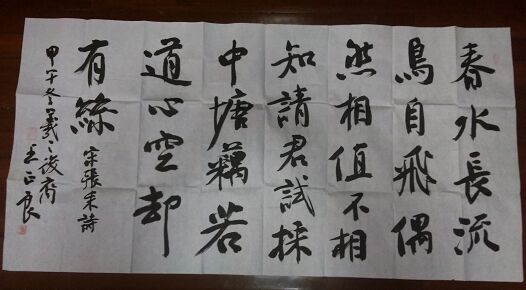 春水長流
鳥自飛偶
然相值不相
知請君試採
中塘藕若
道心空却
有絲
宋張耒詩
甲午冬羲之後裔
王正良